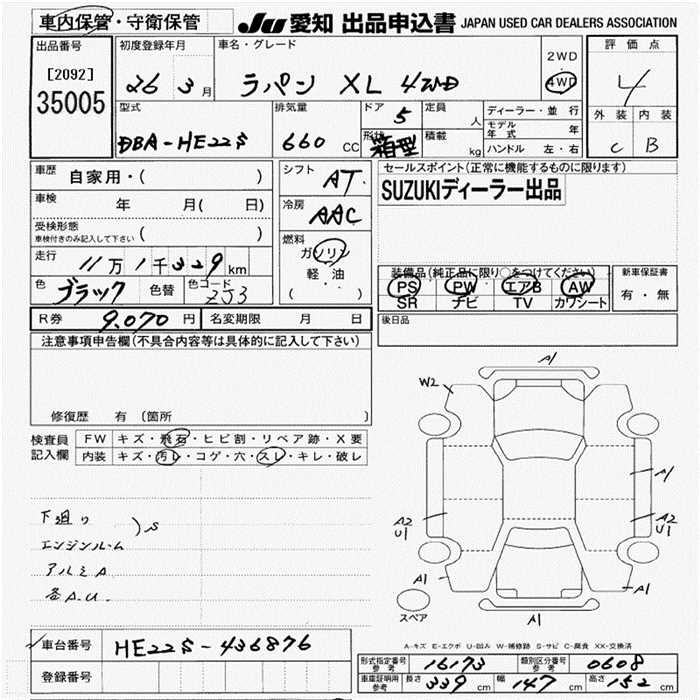 車内保管・守衛保管
JU 愛知 出品申込書 JAPAN USED CAR DEALERS ASSOCIATION
出品番号
[2092]
35005
初度登録年月
26 3月
車名・グレード
ラパン XL 4WD
2WD
4WD
評価点
4
外装 内装
C B
型式
DBA-HE22S
排気量
660 CC
ドア
5
形状
箱型
定員
人
積載
kg
ディーラー・並 行
モデル年式 年
ハンドル 左・右
車歴
自家用・( )
車検
年 月( 日)
受検形態
車検付きのみ記入して下さい ( )
走行
11万1千329km
色
ブラック
色替
色コード
ZJ3
シフト
AT
冷房
AAC
燃料
ガソリン
軽油
( )
セールスポイント(正常に機能するものに限ります)
SUZUKIディーラー出品
装備品(純正品に限り○をつけてください)
PS PW エアB AW
SR ナビ TV カワシート
新車保証書
有・無
R券 9,070円
名変期限 月 日
後日品
注意事項申告欄(不具合内容等は具体的に記入して下さい)
修復歴 有 (箇所 )
検査員
記入欄
FW キズ・飛石・ヒビ割・リペア跡・X要
内装 キズ・汚レ・コゲ・穴・スレ・キレ・破レ
下廻り
エンジンルーム
)S
アルミA
各A.U.
A1
W2
A1
A2
U1
A2
U1
A1
A1
A1
スペア
A-キズ E-エクボ U-凹み W-補修跡 S-サビ C-腐食 XX-交換済
車台番号
HE22S-436876
登録番号
形式指定番号
参考
16173
類別区分番号
参考
0608
車庫証明用
参考
長さ 339 cm
幅 147 cm
高さ 152 cm